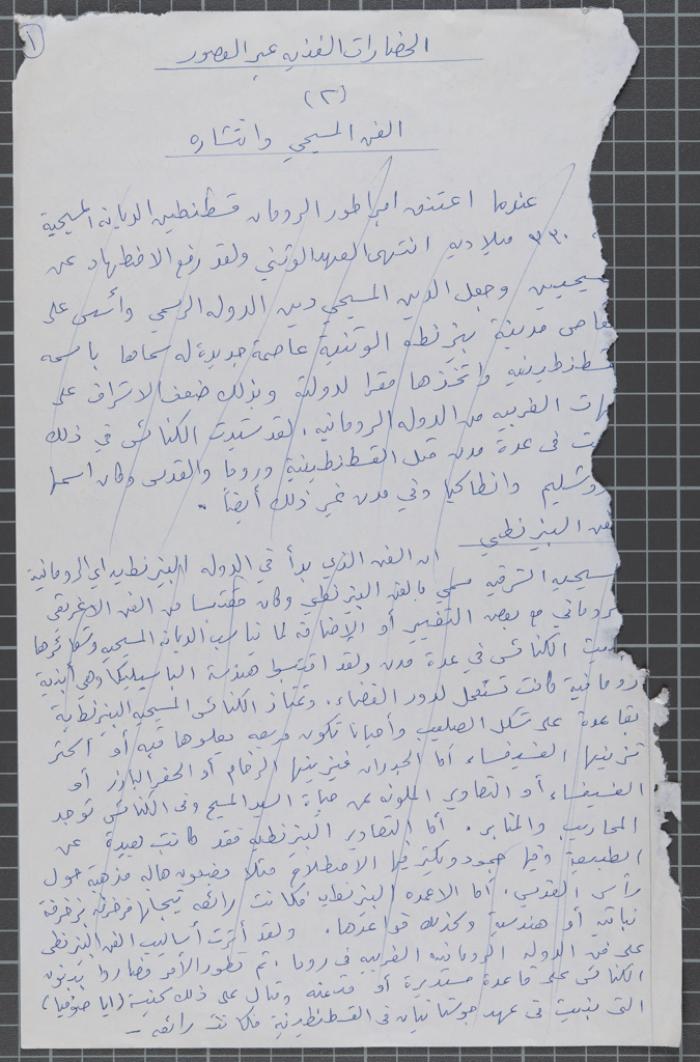 ١
الحضارات الفنيه عبر العصور
(٢)
الفن المسيحي وانتشاره
عندما اعتنق امبراطور الرومان قسطنطين الديانه المسيحية
٣٣٠ ميلاديه انتهى العهد الوثني ولقد رفع الاضطهاد عن
سيحيين وجعل الدين المسيحي دين الدوله الرسمي وأسس على
قاض مدينة بيزنطه الوثنية عاصمة جديدة له سماها باسمه
قسطنطينيه واتخذها مقرا لدولته وبذلك ضعف الاشراف على
هات الغربيه من الدوله الرومانيه. لقد شيدت الكنائس في ذلك
ت فى عدة مدن مثل القسطنطينية وروما والقدس وكان اسمها
ورشليم وانطاكيا وفي مدن غير ذلك أيضاً.
فن البيزنطي ان الفن الذى بدأ في الدوله البيزنطيه اي الرومانية
سيحيه الشرقيه سمي بالفن البيزنطي وكان مقتبسا من الفن الاغريقي
لروماني مع بعض التغيير أو الإضافه لما يناسب الديانه المسيحيه وشعائرها
الكنائس في عدة مدن ولقد اقتبسوا هندسة الباسيليكا وهي أبنية
رومانية كانت تستعمل لدور القضاء. وتمتاز الكنائس المسيحيه البيزنطية
بقاعدة على شكل الصليب وأحيانا تكون مربعه تعلوها قبه أو أكثر
تزينها الفسيفساء أما الجدران فيزينها الرخام أو الحفر البارز أو
الفسيفساء أو التصاوير الملونه عن حياة السيد المسيح وفى الكنائس توجد
المحاريب والمنابر. أما التصاوير البيزنطيه فقد كانت بعيدة عن
الطبيعة وفيها جمود ويكثر فيها الاصطلاح مثلا يضعون هاله مذهبة حول
رأس القديس. أما الاعمده البيزنطيه فكانت رائعه تيجانها مزخرفه بزخرفة
نباتيه أو هندسية وكذلك قواعدها. ولقد أثرت أساليب الفن البيزنطي
على فن الدوله الرومانيه الغربيه فى روما. ثم تطور الأمر فصاروا يبنون
الكنائس على قاعدة مستديرة أو مثمنه ومثال على ذلك كنيسة (ايا صوفيا)
التى بنيت في عهد جوستانيان فى القسطنطينية فكانت رائعه -